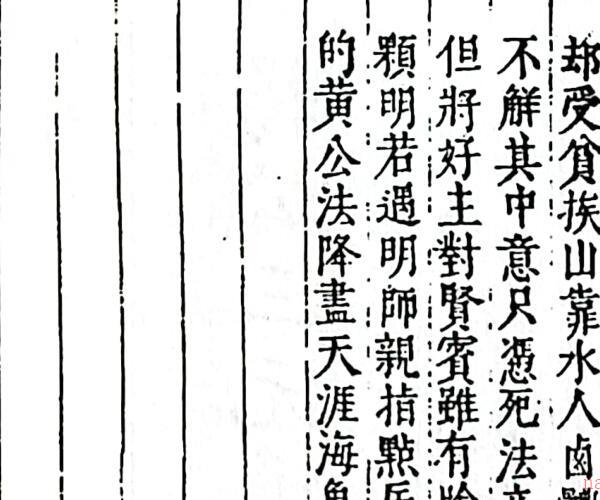 却受貧挨山靠水人鹵
不觧其中意只憑死法
但將好主對賢賓雖有
顆明若遇明師親指㸃
的黄公法降盡天涯海